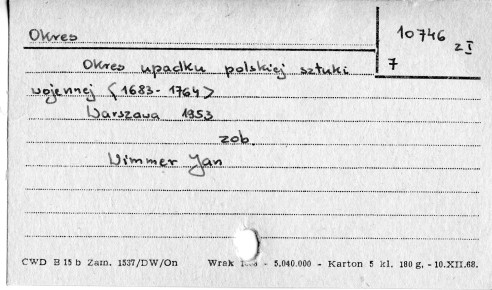 Okres
10746 z I
7
Okres upadku polskiej sztuki
wojennej <1683-1764>
Warszawa 1953
zob.
Wimmer Jan
CWD B 15 b Zam. 1537/DW/On Wrak - 5.040.000 - Karton 5 kl. 180 g, - 10.XII.68.